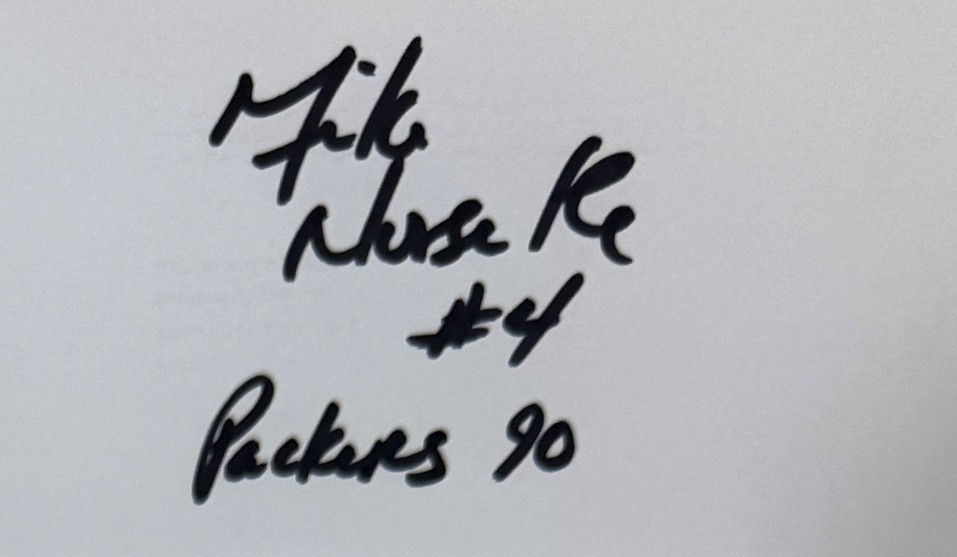 Mike
Nurse Re
#4
Packers 90